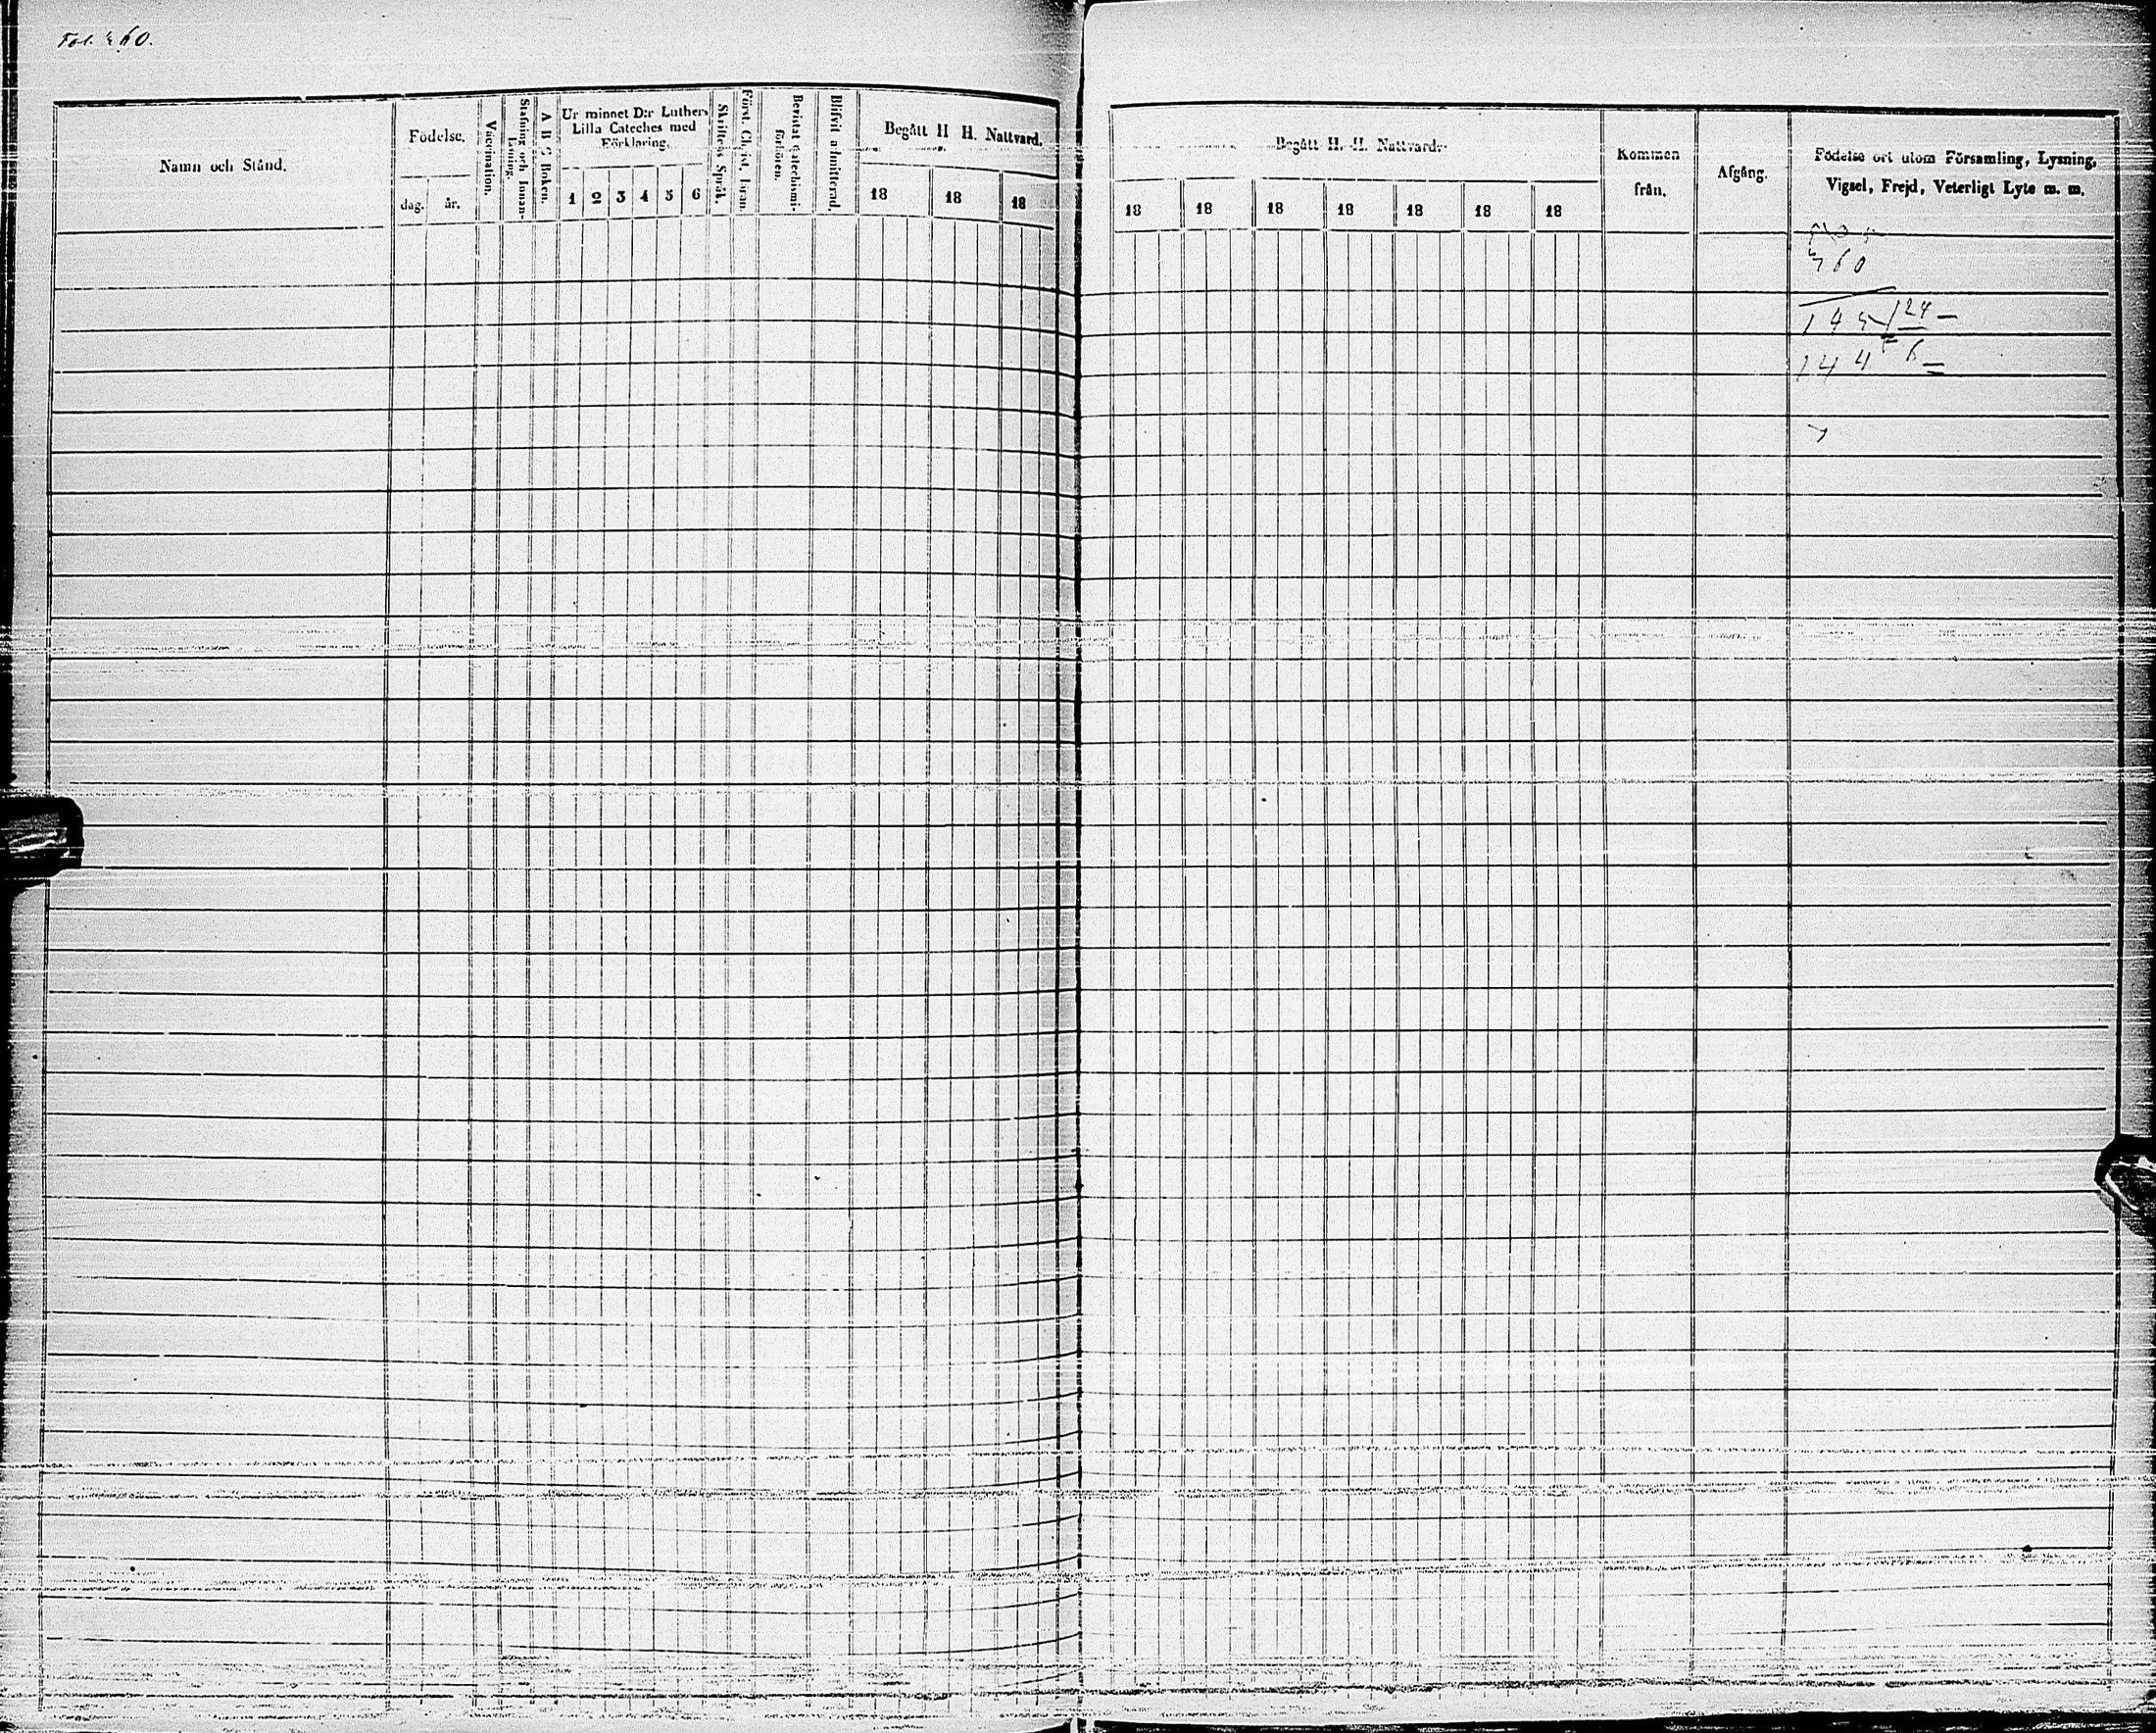 Fol. 460.
Namn och Stånd.
Födelse.
dag. år.
Vaccination.
Stafning och Innan-läsning.
A B C Boken.
Ur minnet D:r Luthers
Lilla Cateches med
Förklaring.
1 2 3 4 5 6
Skriftens Språk.
Förest. Christ.
Bevistat Catechismi-förhören.
Blifvit admitterad.
Begått H H. Nattvard.
18 18 18
Begått H. H. Nattvard.
18 18 18 18 18 18 18
Kommen
från.
Afgång.
Födelse ort utom Församling, Lysning,
Vigsel, Frejd, Veterligt Lyte m. m.
460
145 / 24
144 6